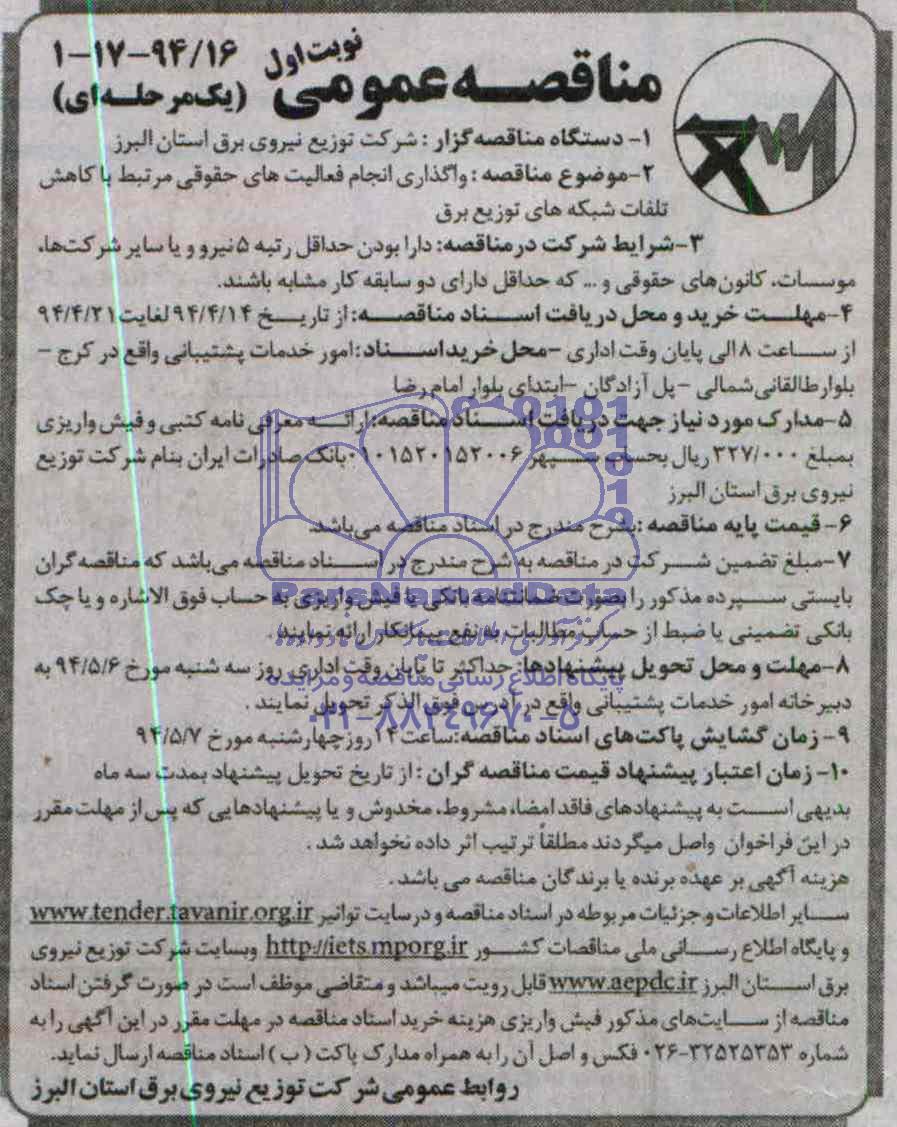 نوبت اول
۱-۱۷-۹۴/۱۶
مناقصه عمومی (یک مرحله‌ای)
۱- دستگاه مناقصه گزار : شرکت توزیع نیروی برق استان البرز
۲-موضوع مناقصه : واگذاری انجام فعالیت های حقوقی مرتبط با کاهش
تلفات شبکه های توزیع برق
۳-شرایط شرکت در مناقصه: دارا بودن حداقل رتبه ۵ نیرو و یا سایر شرکت‌ها،
موسسات، کانون‌های حقوقی و ... که حداقل دارای دو سابقه کار مشابه باشند.
۴-مهلت خرید و محل دریافت اسناد مناقصه: از تاریخ ۹۴/۴/۱۴ لغایت ۹۴/۴/۲۱
از ساعت ۸ الی پایان وقت اداری -محل خرید اسناد: امور خدمات پشتیبانی واقع در کرج -
بلوار طالقانی شمالی - پل آزادگان -ابتدای بلوار امام رضا
۵-مدارک مورد نیاز جهت دریافت اسناد مناقصه: ارائه معرفی نامه کتبی و فیش واریزی
بمبلغ ۳۲۷/۰۰۰ ریال بحساب سپهر ۰۱۰۱۵۲۰۱۵۲۰۰۶ بانک صادرات ایران بنام شرکت توزیع
نیروی برق استان البرز
۶- قیمت پایه مناقصه : بشرح مندرج در اسناد مناقصه می‌باشد.
۷-مبلغ تضمین شرکت در مناقصه به شرح مندرج در اسناد مناقصه می‌باشد که مناقصه گران
بایستی سپرده مذکور را بصورت ضمانتنامه بانکی یا فیش واریزی به حساب فوق الاشاره و یا چک
بانکی تضمینی یا ضبط از حساب مطالبات به نفع پیمانکار ارائه نمایند.
۸-مهلت و محل تحویل پیشنهادها: حداکثر تا پایان وقت اداری روز سه شنبه مورخ ۹۴/۵/۶ به
دبیرخانه امور خدمات پشتیبانی واقع در آدرس فوق الذکر تحویل نمایند .
۹- زمان گشایش پاکت‌های اسناد مناقصه: ساعت ۱۴ روز چهارشنبه مورخ ۹۴/۵/۷
۱۰- زمان اعتبار پیشنهاد قیمت مناقصه گران : از تاریخ تحویل پیشنهاد بمدت سه ماه
بدیهی است به پیشنهادهای فاقد امضا، مشروط، مخدوش و یا پیشنهادهایی که پس از مهلت مقرر
در این فراخوان واصل میگردند مطلقاً ترتیب اثر داده نخواهد شد .
هزینه آگهی بر عهده برنده یا برندگان مناقصه می باشد .
سایر اطلاعات و جزئیات مربوطه در اسناد مناقصه و در سایت توانیر www.tender.tavanir.org.ir
و پایگاه اطلاع رسانی ملی مناقصات کشور http://iets.mporg.ir وبسایت شرکت توزیع نیروی
برق استان البرز www.aepdc.ir قابل رویت میباشد و متقاضی موظف است در صورت گرفتن اسناد
مناقصه از سایت‌های مذکور فیش واریزی هزینه خرید اسناد مناقصه در مهلت مقرر در این آگهی را به
شماره ۳۲۵۲۵۳۵۳-۰۲۶ فکس و اصل آن را به همراه مدارک پاکت ( ب ) اسناد مناقصه ارسال نماید.
روابط عمومی شرکت توزیع نیروی برق استان البرز
ParsNamadData
پایگاه اطلاع رسانی مناقصه و مزایده
۰۲۱-۸۸۳۴۹۶۷۰-۵